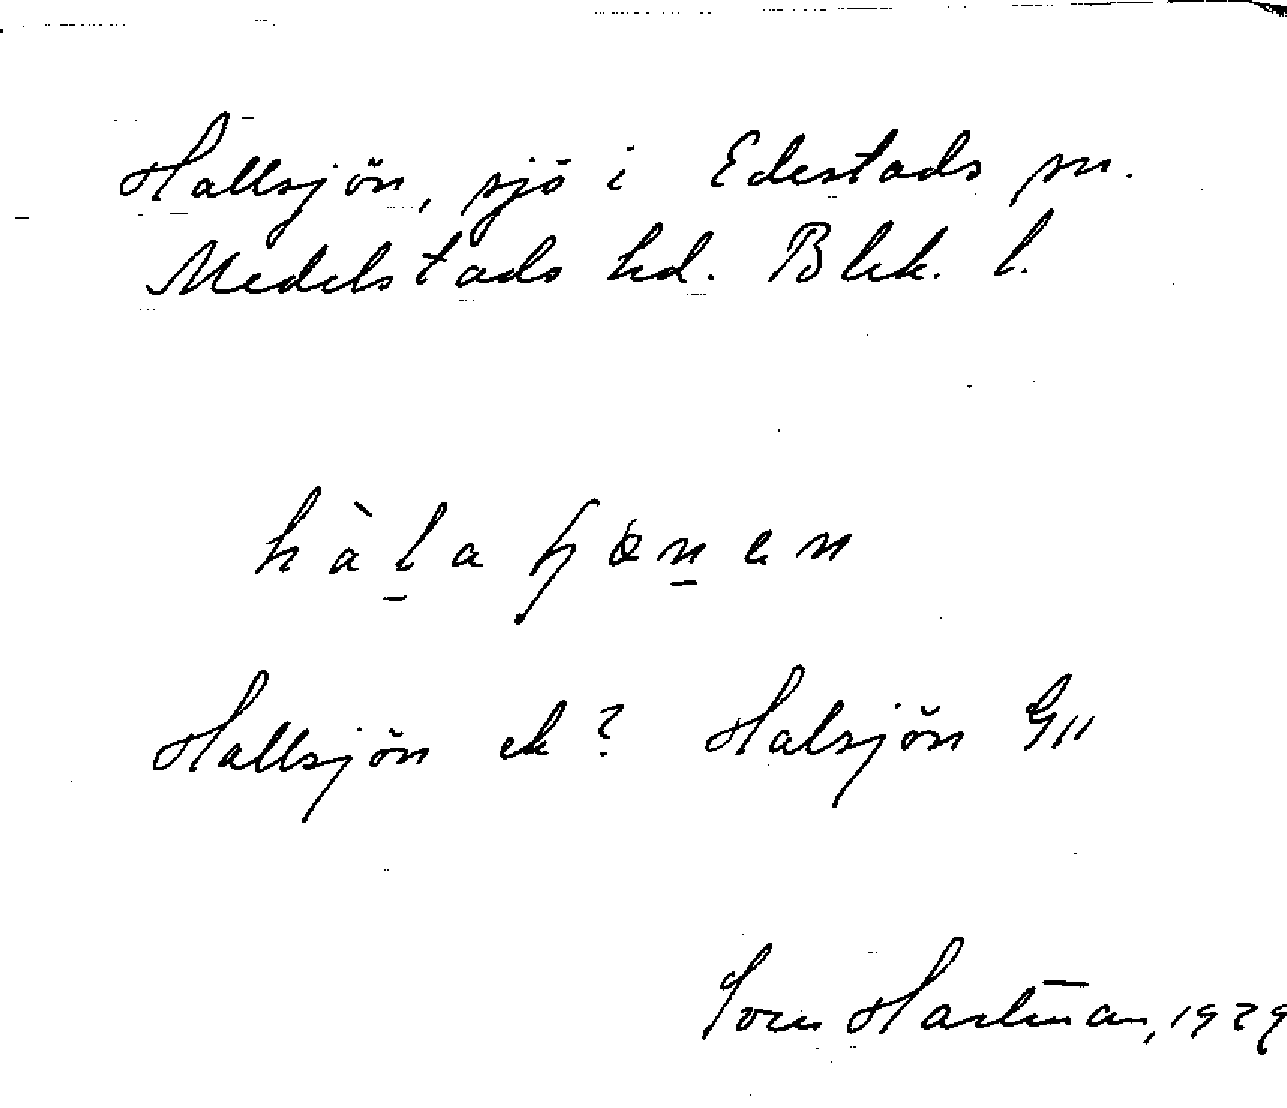 Hallsjön, sjö i Edestads sn.
Medelstads hd. Blek. l.
hàlaʃɶnen
Hallsjön ek? Halsjön G11
Hartman, 1929